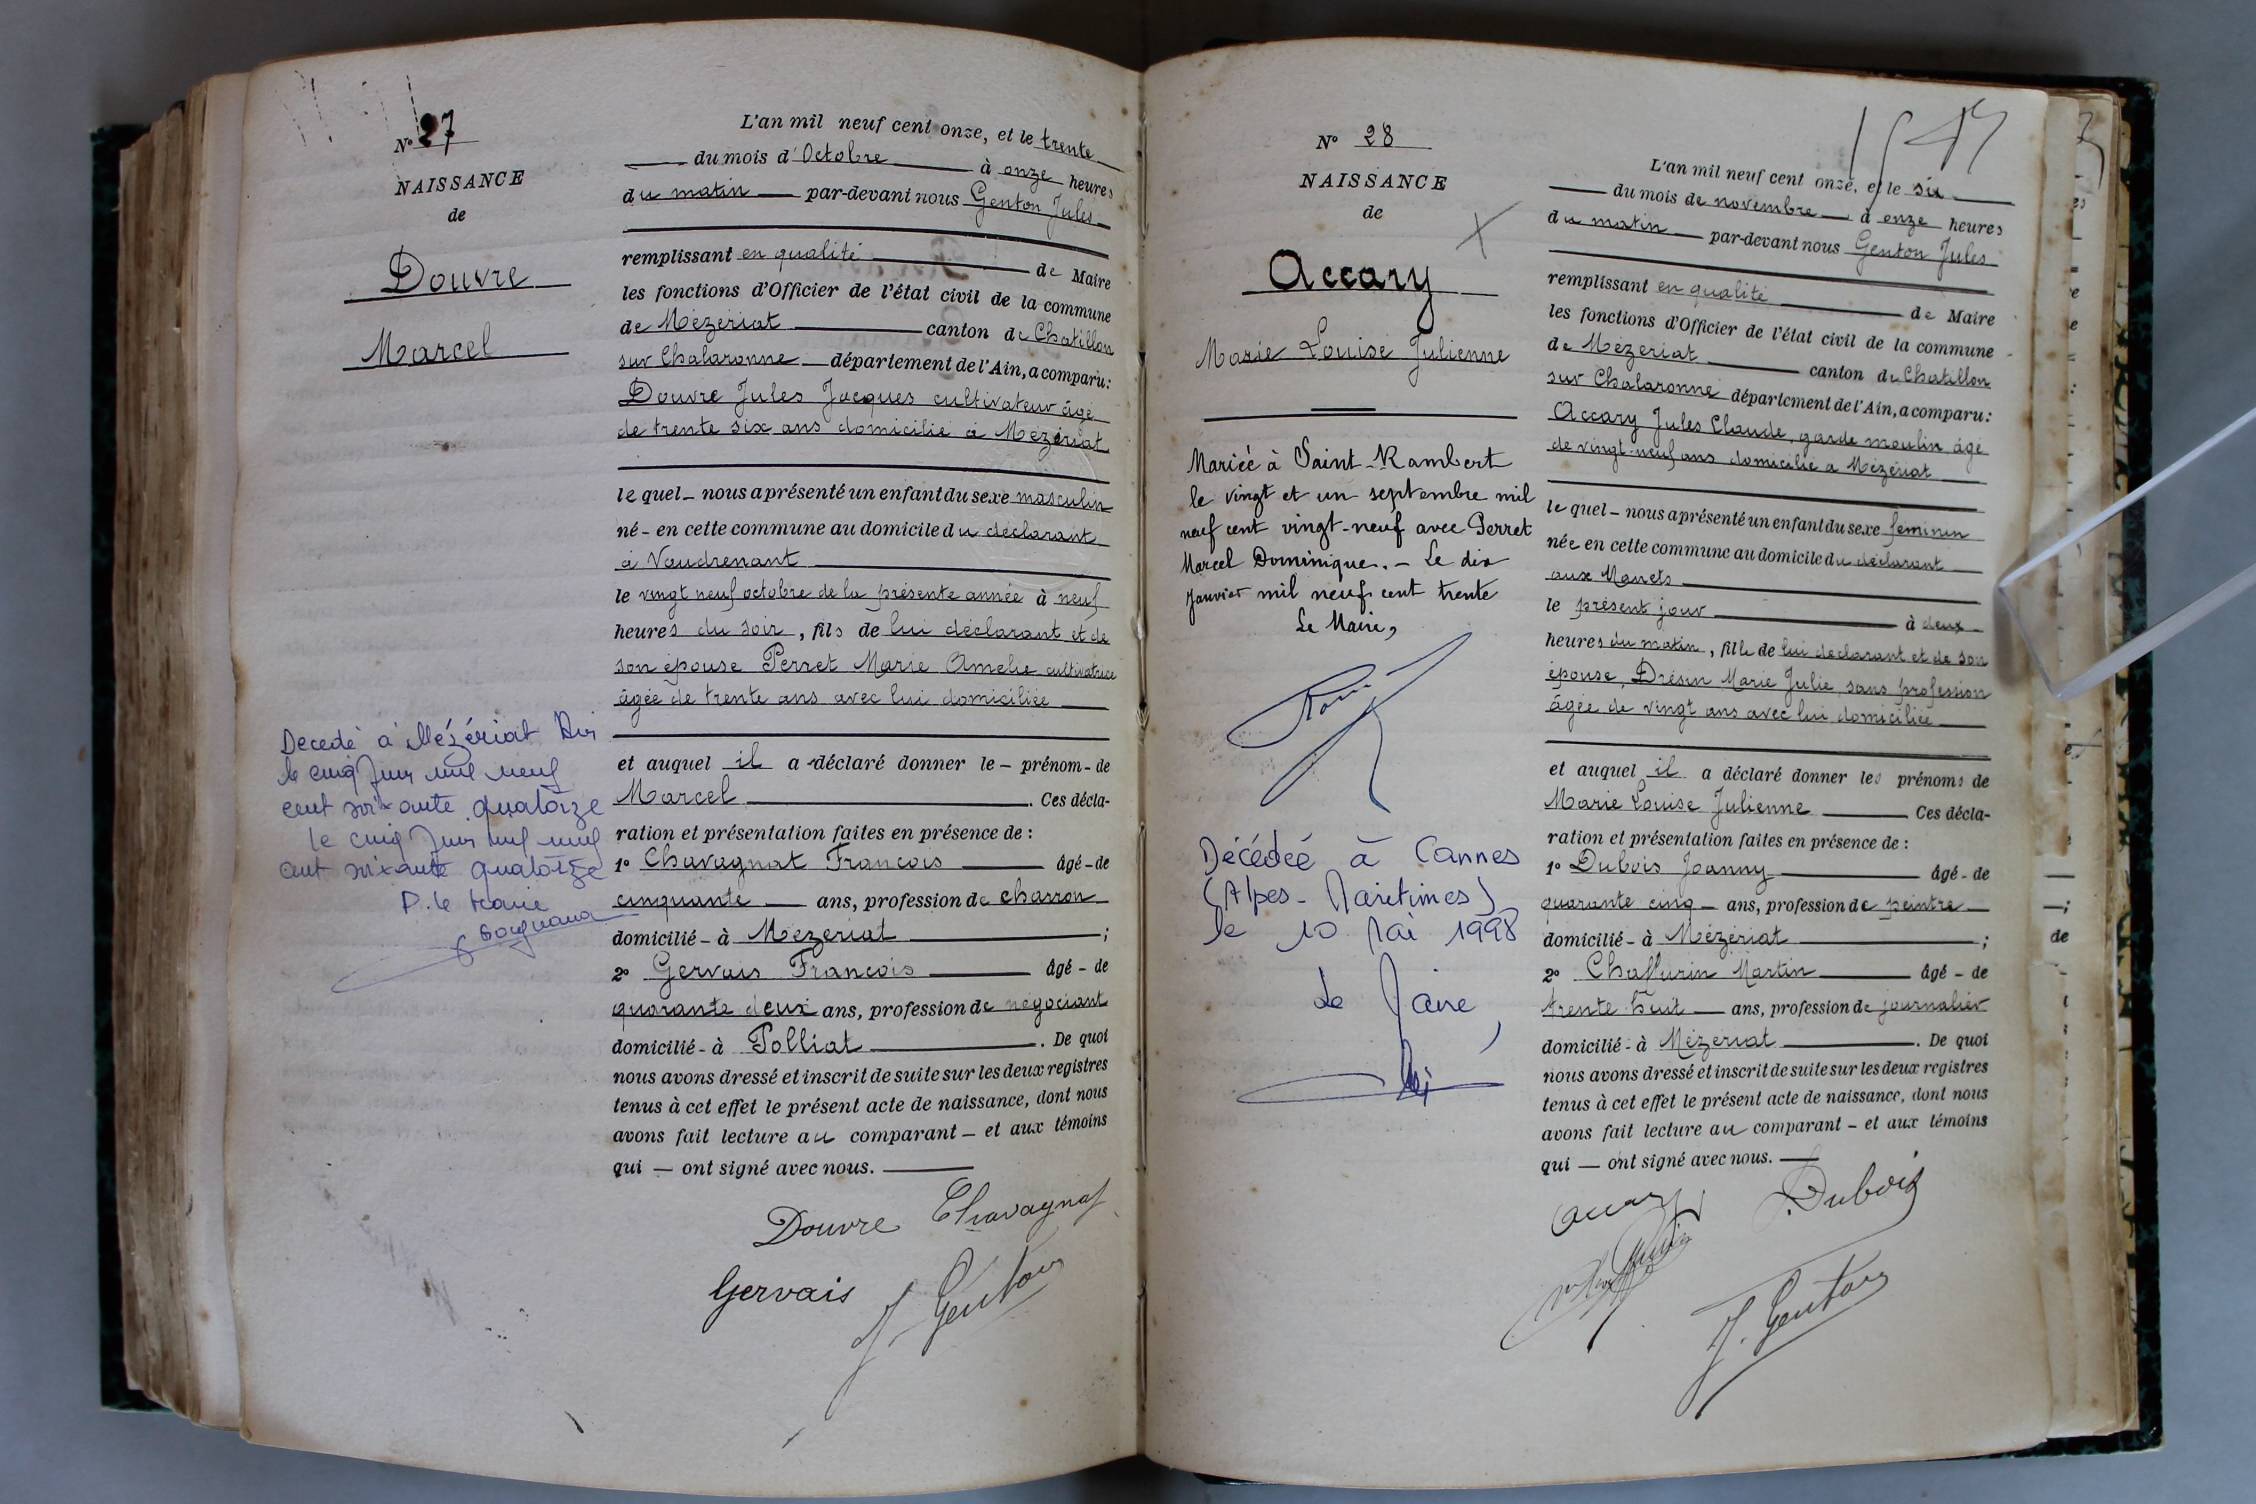 N° 27
NAISSANCE
de
Douvre
Marcel
Décédé à Mézériat Ain
le cinq Juin mil neuf
cent soixante quatorze
le cinq Juin mil neuf
cent soixante quatorze
P. le Maire
L'an mil neuf cent onze, et le trente
du mois d'Octobre à onze heures
du matin par-devant nous Genton Jules
remplissant en qualité de Maire
les fonctions d'Officier de l'état civil de la commune
de Mézériat canton de Chatillon
sur Chalaronne département de l'Ain, a comparu:
Douvre Jules Jacques cultivateur âgé
de trente six ans domicilié à Mézériat
le quel - nous a présenté un enfant du sexe masculin
né - en cette commune au domicile du déclarant
à Vaudrenant
le vingt neuf octobre de la présente année à neuf
heures du soir, fils de lui déclarant et de
son épouse Perret Marie Amélie cultivatrice
âgée de trente ans avec lui domiciliée
et auquel il a déclaré donner le - prénom - de
Marcel . Ces décla-
ration et présentation faites en présence de :
1° Chavagnat Francois âgé - de
cinquante ans, profession de charron
domicilié - à Mézériat ;
2° Gervais Francois âgé - de
quarante deux ans, profession de négociant
domicilié - à Polliat . De quoi
nous avons dressé et inscrit de suite sur les deux registres
tenus à cet effet le présent acte de naissance, dont nous
avons fait lecture au comparant - et aux témoins
qui — ont signé avec nous.
Douvre Chavagnat
Gervais J. Genton
N° 28
NAISSANCE
de
Accary
Marie Louise Julienne
Mariée à Saint-Rambert
le vingt et un septembre mil
neuf cent vingt-neuf avec Perret
Marcel Dominique. - Le dix
Janvier mil neuf cent trente
Le Maire,
Décédée à Cannes
(Alpes-Maritimes)
le 10 Mai 1998
Le Maire,
L'an mil neuf cent onze, et le six
du mois de novembre à onze heures
du matin par-devant nous Genton Jules
remplissant en qualité de Maire
les fonctions d'Officier de l'état civil de la commune
de Mézériat canton de Chatillon
sur Chalaronne département de l'Ain, a comparu:
Accary Jules Claude, garde moulin âgé
de vingt-neuf ans domicilié à Mézériat
le quel - nous a présenté un enfant du sexe féminin
née en cette commune au domicile du déclarant
aux Manets
le présent jour à deux
heures du matin, fille de lui déclarant et de son
épouse, Drésin Marie Julie, sans profession
âgée de vingt ans avec lui domiciliée
et auquel il a déclaré donner les prénoms de
Marie Louise Julienne Ces décla-
ration et présentation faites en présence de :
1° Dubois Joanny âgé - de
quarante cinq ans, profession de peintre
domicilié - à Mézériat ;
2° Chaffurin Martin âgé - de
trente-huit ans, profession de journalier
domicilié - à Mézériat . De quoi
nous avons dressé et inscrit de suite sur les deux registres
tenus à cet effet le présent acte de naissance, dont nous
avons fait lecture au comparant - et aux témoins
qui — ont signé avec nous.
Accary J. Dubois
J. Genton